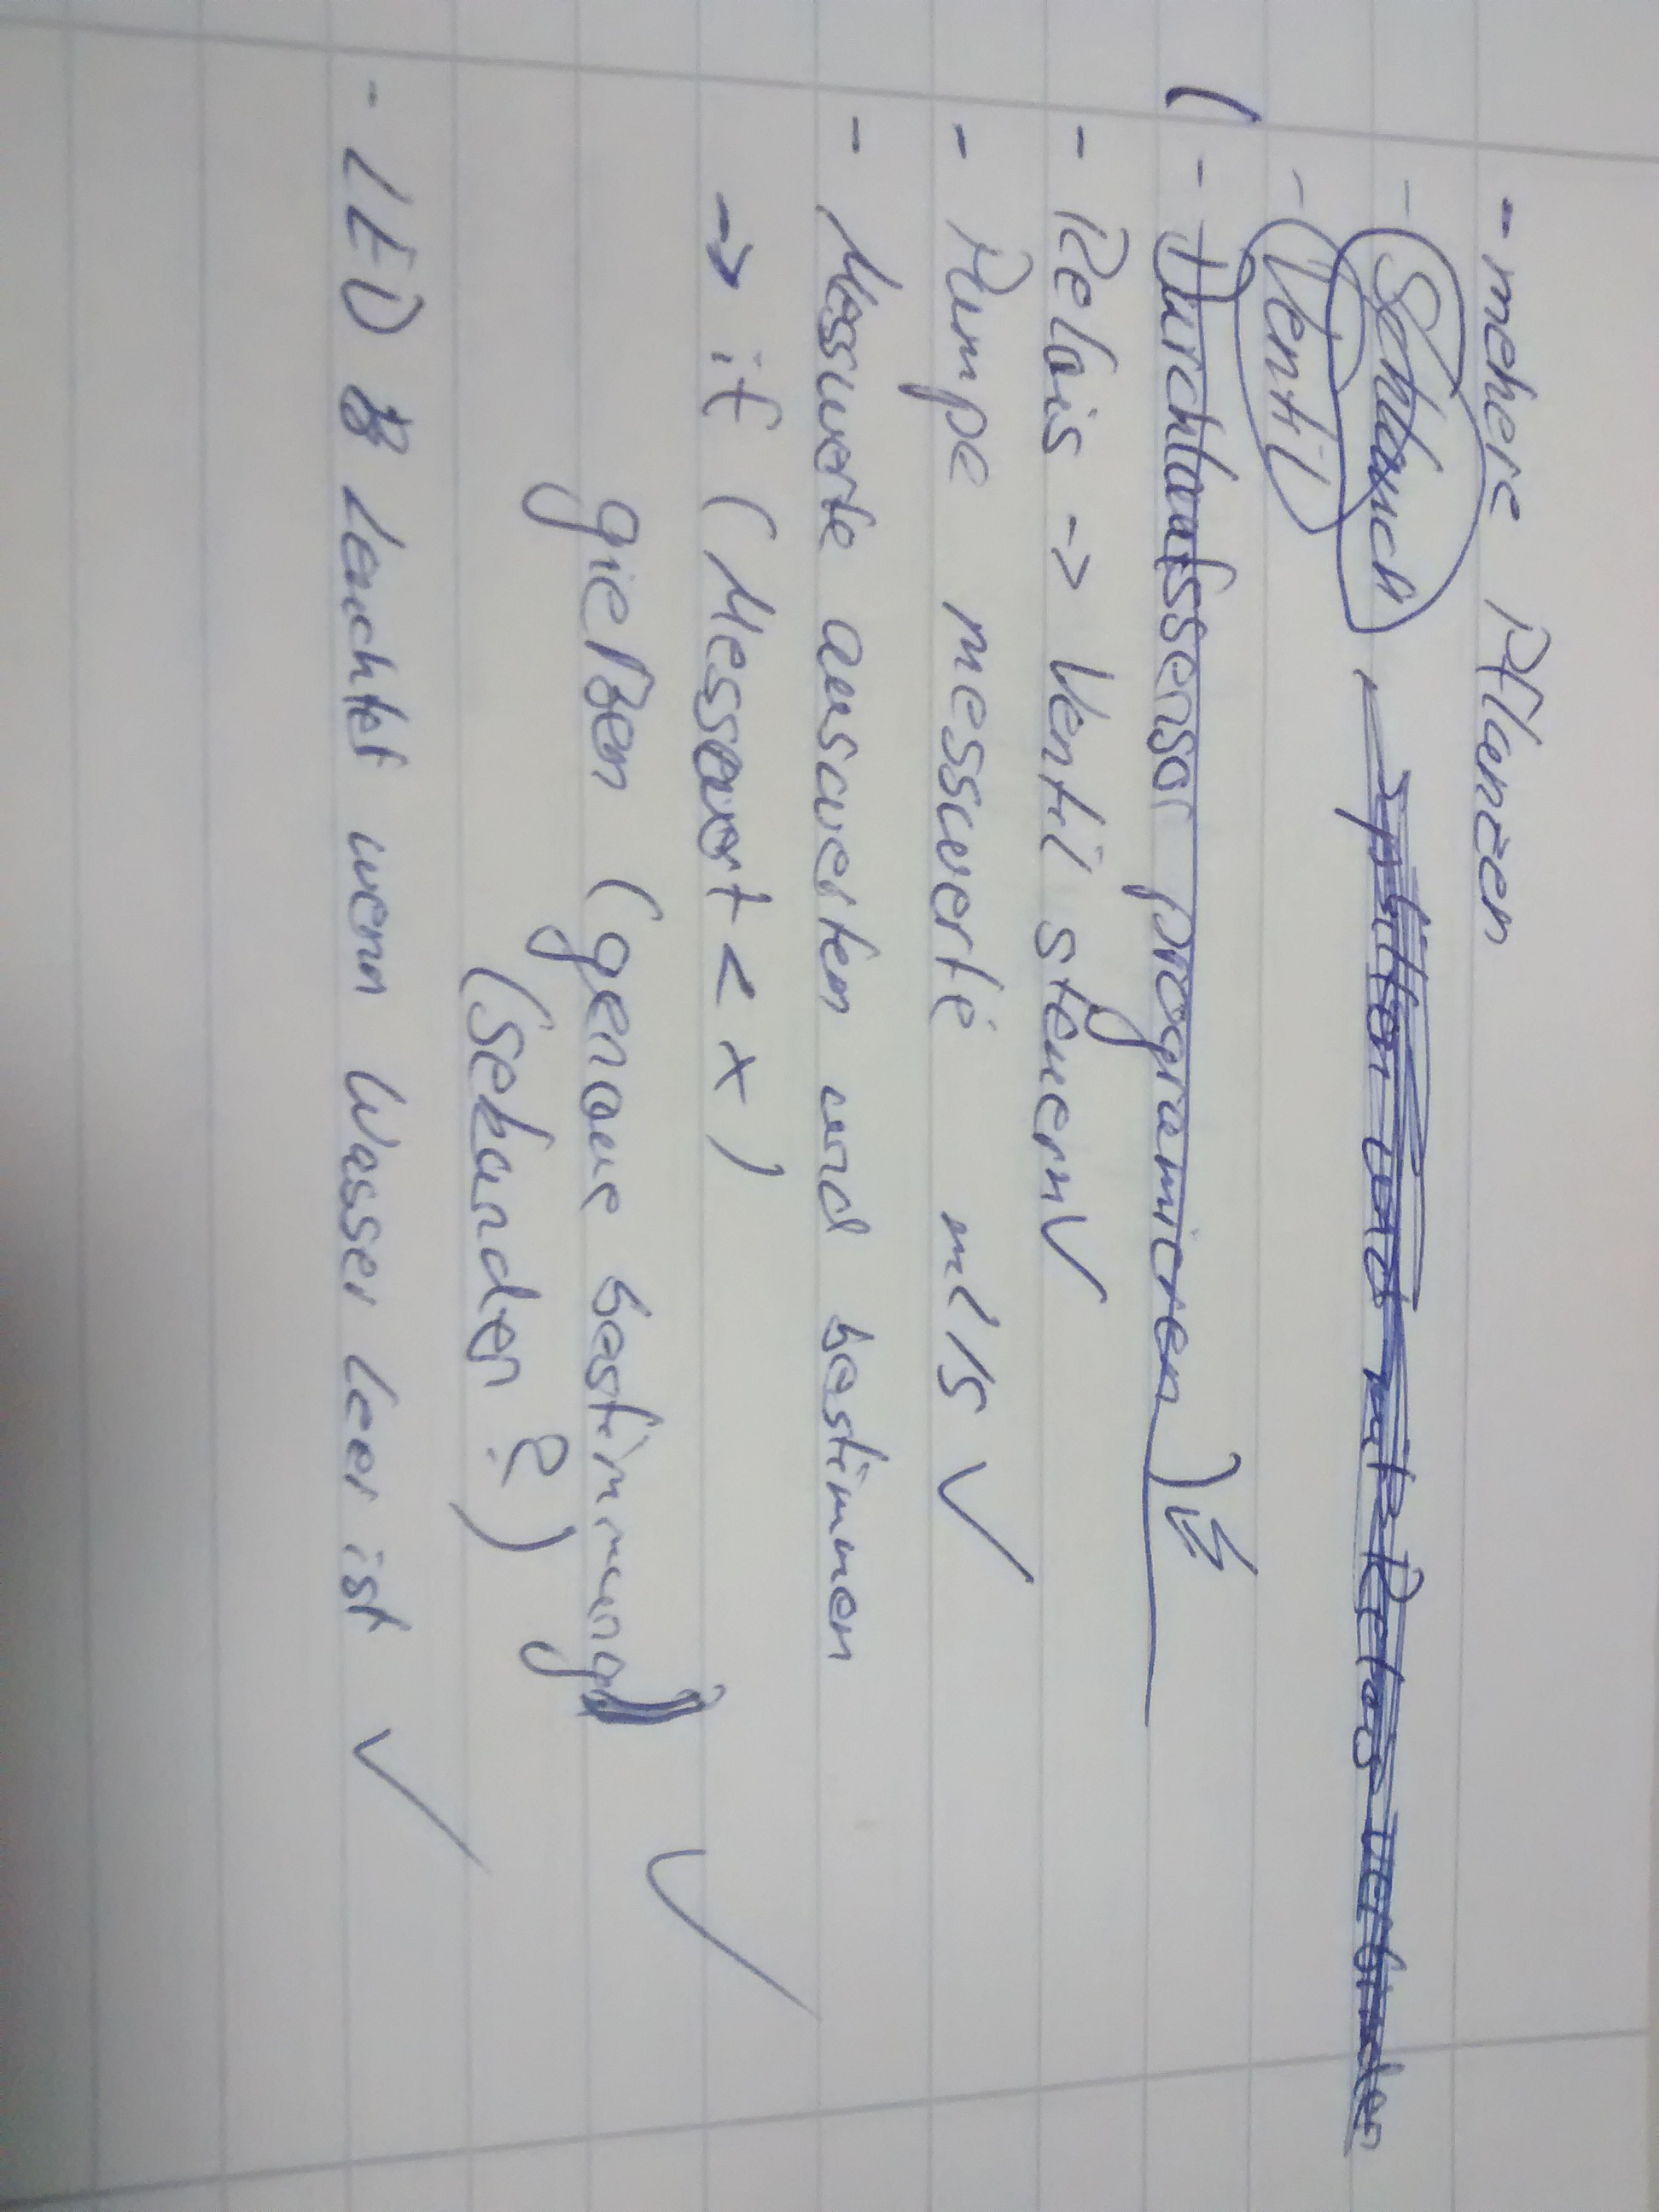 - mehere Pflanzen
- Schlauch splitten und mit Relais verbinden
- Ventil
(- Durchlaufsensor programieren)
- Relais -> Ventil steuern ✓
- Pumpe messwerte ml/s ✓
- Messwerte auswerten und bestimmen
-> if (Messwert < x)
gießen (genaue bestimmung) ✓
(sekunden?)
- LED leuchtet wenn Wasser leer ist ✓